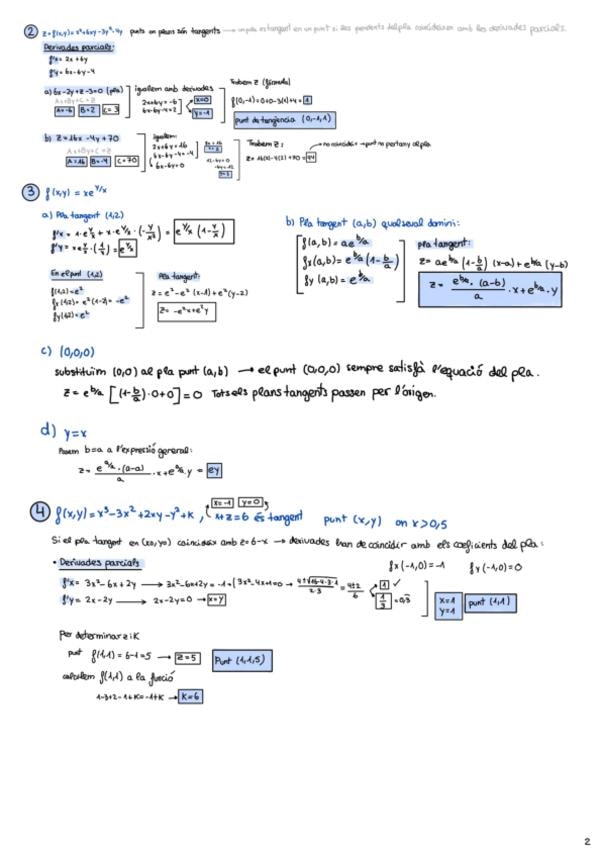 2 z=f(x,y)=x²+6xy-3y²-4y punts on plans són tangents → un pla és tangent en un punt si les pendents del pla coincideixen amb les derivades parcials.
Derivades parcials:
f'x = 2x+6y
f'y = 6x-6y-4
a) 6x-2y+z-3=0 (pla)
Ax+By+C=z
A=-6 B=2 C=3
igualem amb derivades
2x+6y=-6
6x-6y-4=2
x=0
y=-1
Trobem z (fórmula)
f(0,-1)=0+0-3(1)+4=1
punt de tangència (0,-1,1)
b) z=16x-4y+70
Ax+By+C=z
A=16 B=-4 C=70
igualem:
2x+6y=16
6x-6y-4=-4
6x-6y=0
Trobem z:
no coincideix → punt no pertany al pla
3 f(x,y) = xe^y/x
a) Pla tangent (1,2)
f'x = 1·e^y/x + x·e^y/x · (-y/x²) = e^y/x (1-y/x)
f'y = x·e^y/x · (1/x) = e^y/x
En el punt (1,2)
f(1,2)=e²
fx(1,2)= e²(1-2)= -e²
fy(1,2)=e²
Pla tangent:
z=e²-e²(x-1)+e²(y-2)
z= -e²x+e²y
b) Pla tangent (a,b) qualsevol domini:
f(a,b)= ae^b/a
fx(a,b)= e^b/a (1-b/a)
fy(a,b)= e^b/a
pla tangent:
z= ae^b/a (1-b/a) (x-a)+e^b/a (y-b)
z= e^b/a · (a-b)/a · x+e^b/a · y
c) (0,0,0)
substituïm (0,0) al pla punt (a,b) → el punt (0,0,0) sempre satisfà l'equació del pla.
z= e^b/a [(1-b/a)·0+0]=0 Tots els plans tangents passen per l'origen.
d) y=x
Posem b=a a l'expressió general:
z= e^a/a · (a-a)/a · x+e^a/a · y = ey
4 f(x,y)=x³-3x²+2xy-y²+k, x+z=6 és tangent punt (x,y) on x>0,5
x=-1 y=0
Si el pla tangent en (x0,y0) coincideix amb z=6-x → derivades han de coincidir amb els coeficients del pla:
fx(-1,0)=-1 fy(-1,0)=0
• Derivades parcials
f'x= 3x²-6x+2y → 3x²-6x+2y=-1 3x²-4x+1=0 → 4±√16-4·3·1/2·3 = 4±2/6
1 ✓
1/3 =0,3
f'y= 2x-2y → 2x-2y=0 → x=y
x=1
y=1
punt (1,1)
Per determinar z i K
punt f(1,1)=6-1=5 → z=5 Punt (1,1,5)
calculem f(1,1) a la funció
1-3+2-1+K=-1+K → K=6
2